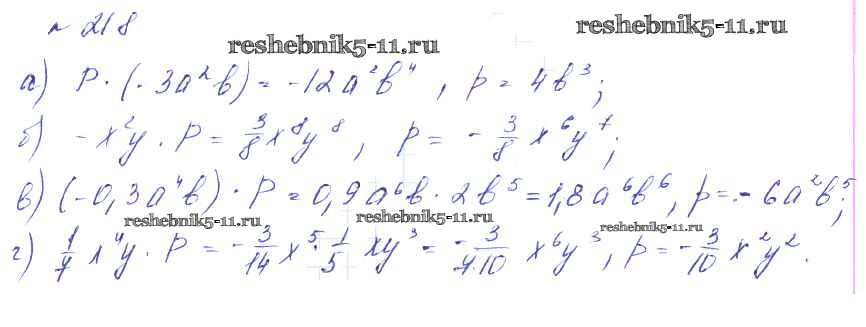 № 218
reshebnik5-11.ru
reshebnik5-11.ru
а) P · (-3a²b) = -12a²b⁴, p = 4b³;
б) -x²y · P = 3/8 x⁸y⁸, p = -3/8 x⁶y⁷;
в) (-0,3a⁴b) · P = 0,9a⁶b · 2b⁵ = 1,8a⁶b⁶, p = -6a²b⁵;
reshebnik5-11.ru
reshebnik5-11.ru
reshebnik5-11.ru
г) 1/7 x⁴y · P = -3/14 x⁵ · 1/5 xy³ = -3/7·10 x⁶y³, p = -3/10 x²y².